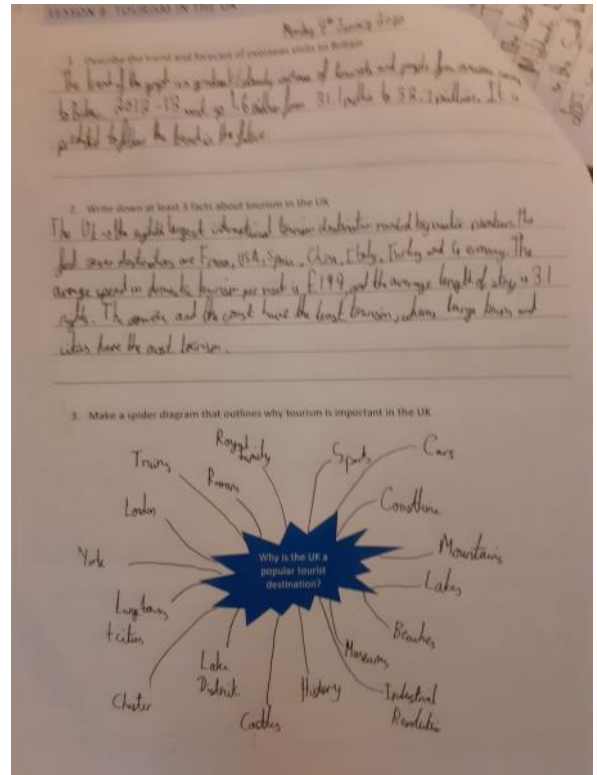 LESSON 8: TOURISM IN THE UK
Monday
1. Describe the trend and forecast of overseas visits to Britain
The trend of the graph is a gradual/steady increase of tourists and people from overseas
to Britain. 2012-13 went up 1.6 million from 31.1 million to 32.7 million. It is
predicted to follow the trend in the future.
2. Write down at least 3 facts about tourism in the UK
The UK is the eighth largest international tourism destination ranked by visitor numbers. The
first seven destinations are France, USA, Spain, China, Italy, Turkey and Germany. The
average spend in domestic tourism per visit is £199, and the average length of stay is 3.1
nights. The and the coast have the least tourism, whereas large towns and
cities have the most tourism.
3. Make a spider diagram that outlines why tourism is important in the UK
Royal
Family
Sports
Cars
Trains
Romans
London
Coastline
York
Why is the UK a
popular tourist
destination?
Mountains
Lakes
Large towns
+ cities
Beaches
Museums
Lake
District
Chester
Castles
History
Industrial
Revolution